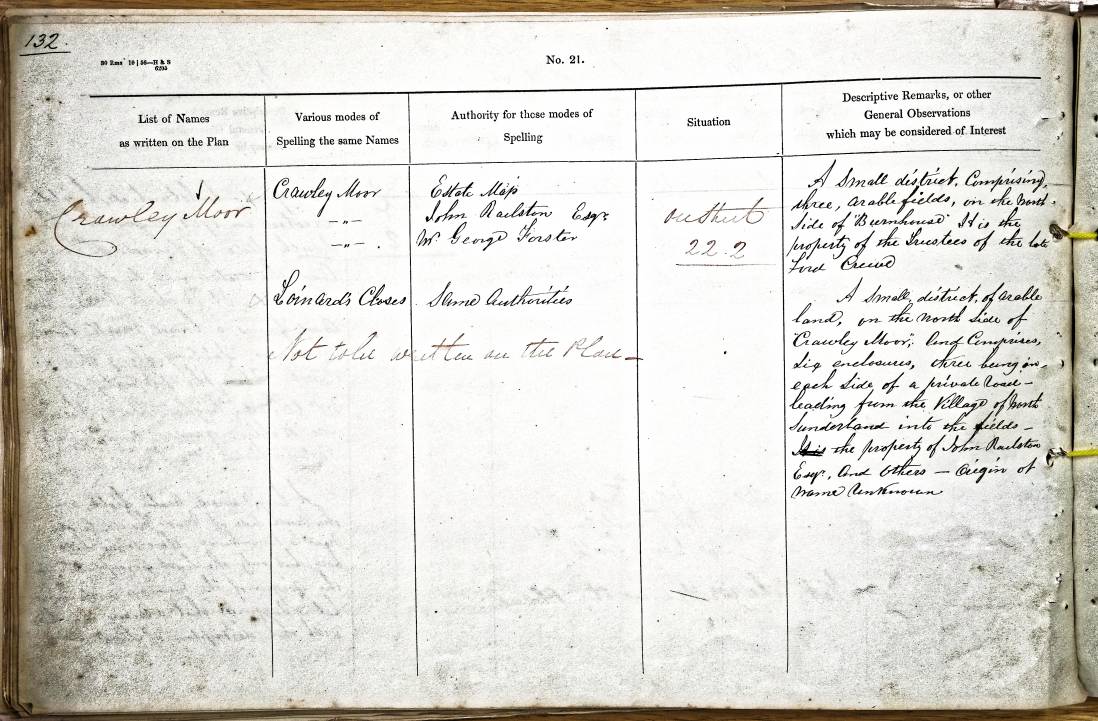 132.
30 Rms 10 | 56—H & S
6205
No. 21.
List of Names
as written on the Plan
Various modes of
Spelling the same Names
Authority for those modes of
Spelling
Situation
Descriptive Remarks, or other
General Observations
which may be considered of Interest
Crawley Moor
Crawley Moor
—„—
—„— .
Estate Map
John Railston Esqr.
Mr. George Forster
on sheet
22.2
A Small district, Comprising,
three, arable fields, on the North
Side of "Burnhouse" It is the
property of the Trustees of the late
Lord Crewe
Closes
Same Authorities
Not to be written on the Plan —
A Small, district, of arable
land, on the North side of
"Crawley Moor", and Comprises,
six enclosures, three being on
each side of a private road —
leading from the Village of North
Sunderland into the fields —
It is the property of John Railston
Esqr., and others — Origin of
Name Unknown